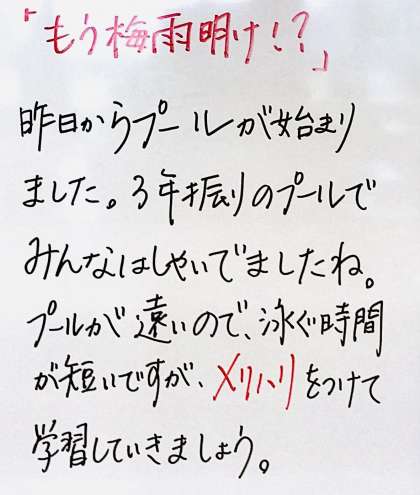 「もう梅雨明け!?」
昨日からプールが始まり
ました。3年振りのプールで
みんなはしゃいでましたね。
プールが遠いので、泳ぐ時間
が短いですが、メリハリをつけて
学習していきましょう。